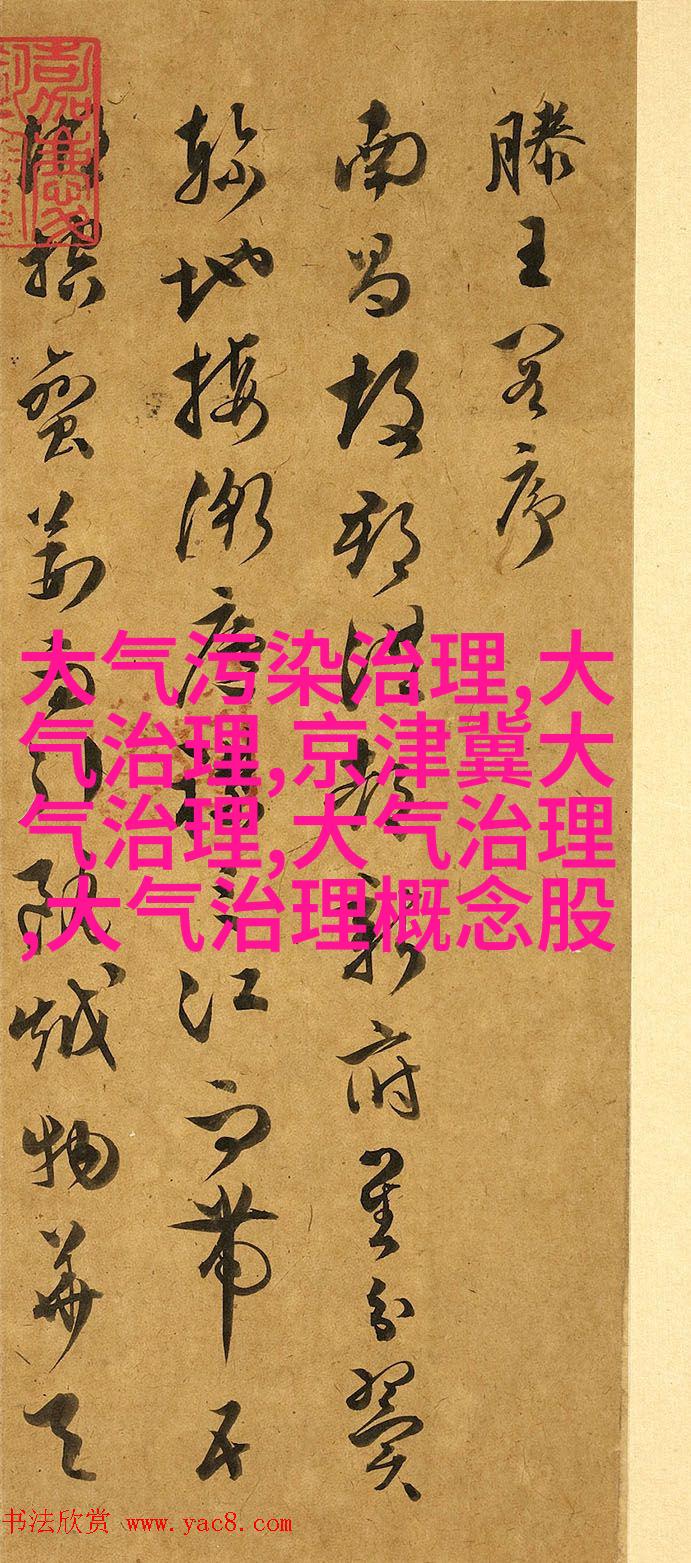 滕王閣序
南昌故郡洪都新府星分翼
軫地接衡廬襟三江而帶五
湖控蠻荊而引甌越物華天
大气污染治理,大
气治理,京津冀大
气治理,大气治理
,大气治理概念股
书法欣赏 www.yac8.com